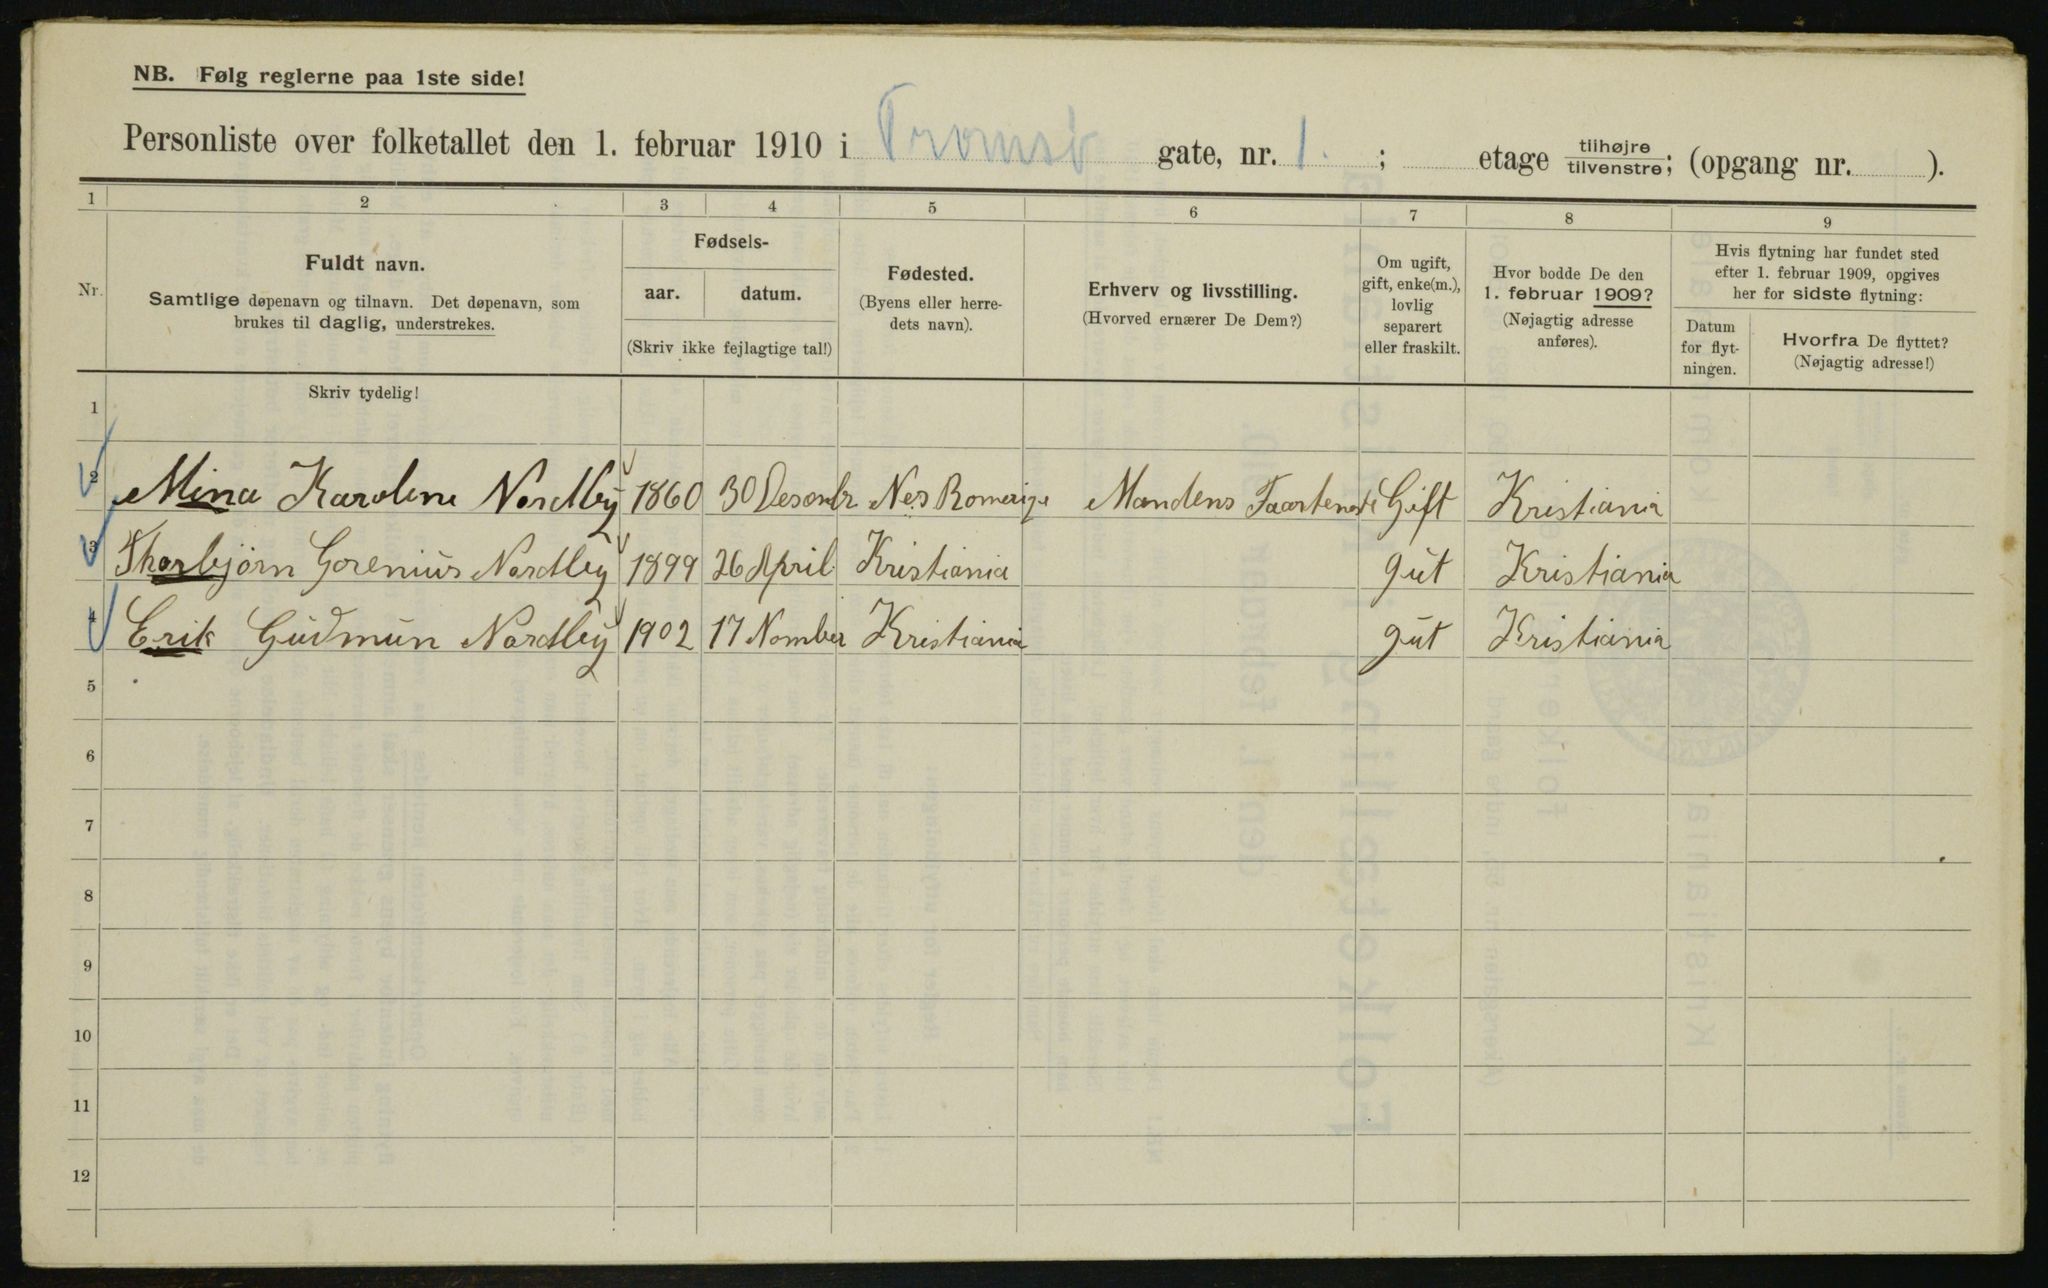 NB. Følg reglerne paa 1ste side!
Personliste over folketallet den 1. februar 1910 i Tromsø gate, nr. 1. ; etage tilhøjre tilvenstre; (opgang nr. ).
1 2 3 4 5 6 7 8 9
Nr.
Fuldt navn.
Samtlige døpenavn og tilnavn. Det døpenavn, som
brukes til daglig, understrekes.
Fødsels-
aar. datum.
(Skriv ikke fejlagtige tal!)
Fødested.
(Byens eller herre-
dets navn).
Erhverv og livsstilling.
(Hvorved ernærer De Dem?)
Om ugift,
gift, enke(m.),
lovlig
separert
eller fraskilt.
Hvor bodde De den
1. februar 1909?
(Nøjagtig adresse
anføres).
Hvis flytning har fundet sted
efter 1. februar 1909, opgives
her for sidste flytning:
Datum
for flyt-
ningen.
Hvorfra De flyttet?
(Nøjagtig adresse!)
Skriv tydelig!
1
2 Mina Karoline Nordby 1860 30 Desembr Nes Romerige Mandens Gift Kristiania
3 Thorbjørn Gorenius Nordby 1899 26 April Kristiania gut Kristiania
4 Erik Gudmun Nordby 1902 17 Nomber Kristiania gut Kristiania
5
6
7
8
9
10
11
12